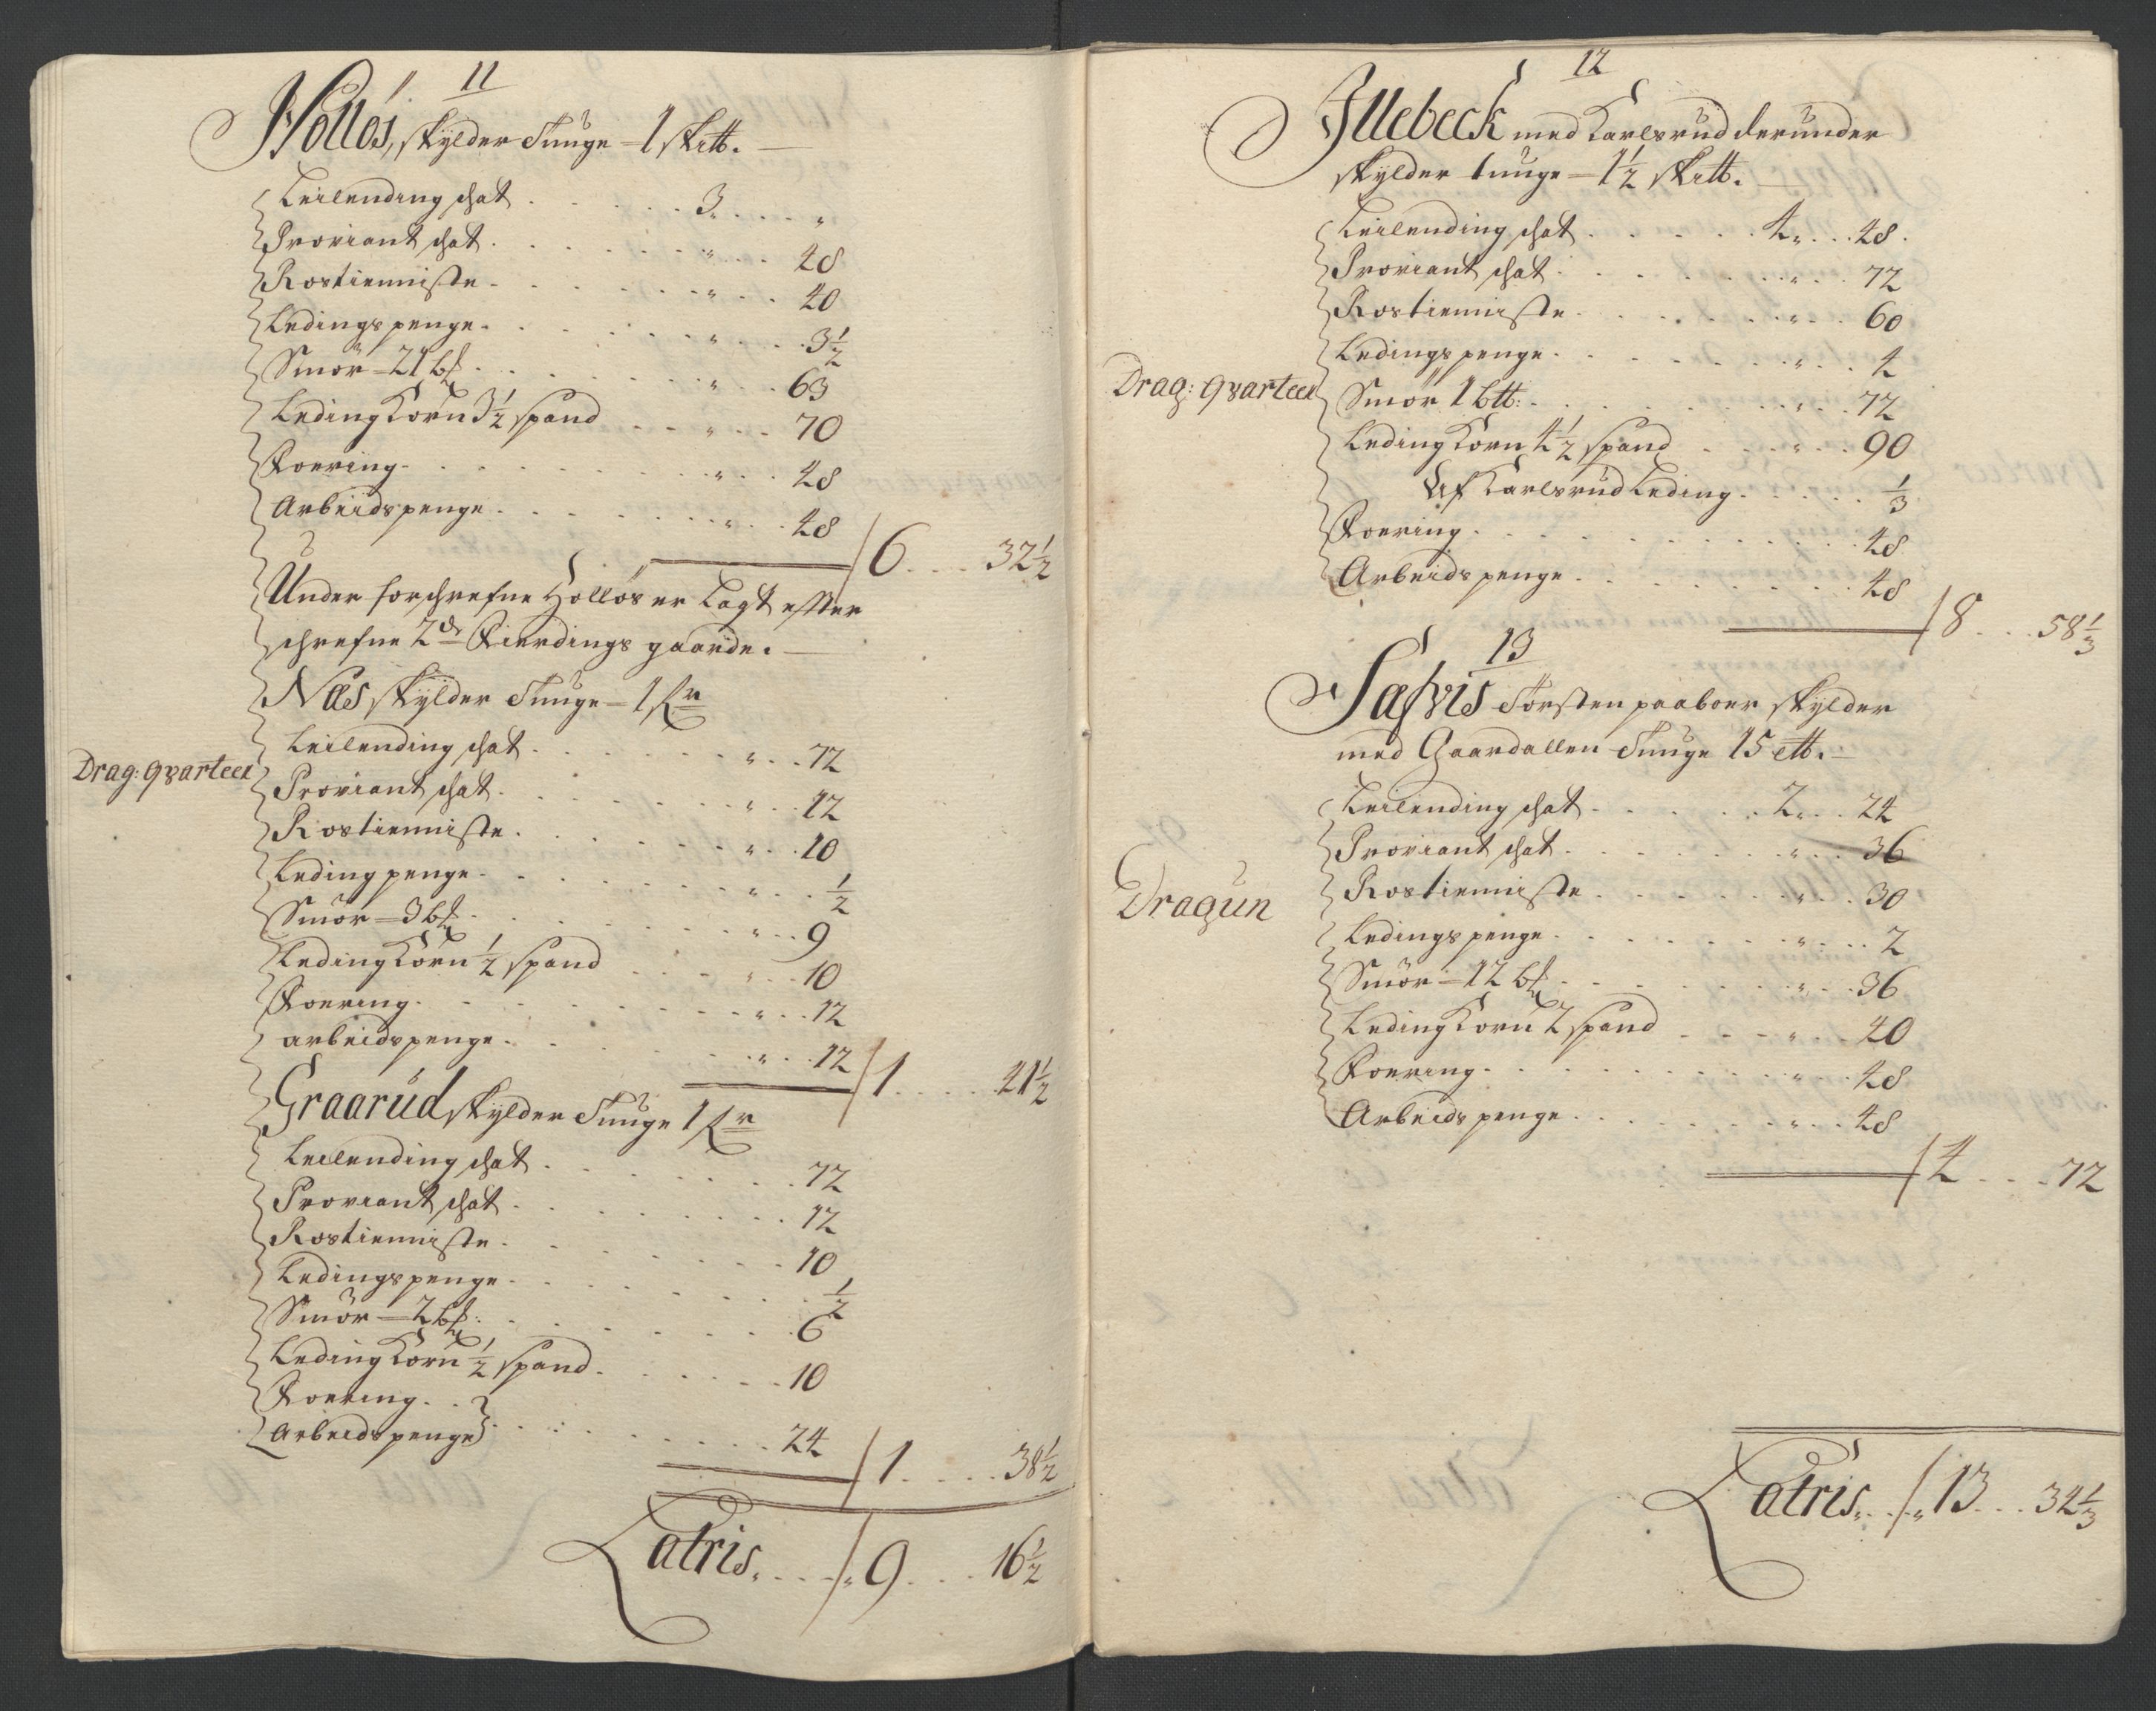 11
Holløs, skylder Tunge = 1 sk℔.
Leilending schat . . . . . 3 „ . . . „
Proviant schat . . . . . . „ . . . 48
Rostienniste . . . . . . „ . . . 40
Ledings penge . . . . . . „ . . . 3½
Smör = 21 b𝔭 . . . . . . „ . . . 63
Leding Korn 3½ spand . . . „ . . . 70
Foering . . . . . . „ . . . 48
Arbeidspenge . . . . . . „ . . . 48 / 6 . . . 32½
Under forschrefne Holløs er Lagt effter
schrefne 2de Fierdings gaarde.
Næs skylder Tunge = 1 fr
Drag: qvarteer
Leilending schat . . . . . . „ . . . 72
Proviant schat . . . . . . „ . . . 12
Rostienniste . . . . . . „ . . . 10
Leding penge . . . . . . „ . . . ½
Smör = 3 b𝔭 . . . . . . „ . . . 9
Leding Korn ½ spand . . . „ . . . 10
Foering . . . . . . „ . . . 12
arbeidspenge . . . . . . „ . . . 12 / 1 . . . 41½
Graarud skylder Tunge 1 fr
Leilending schat . . . . . . 72
Proviant schat . . . . . . 12
Rostienniste . . . . . . 10
Ledingspenge . . . . . . ½
Smör = 2 b𝔭: . . . . . . 6
Leding Korn ½ spand . . . . . . 10
Foering . .
Arbeidspenge } . . . . . . 24 / 1 . . . 38½
Latris . . . / „ 9 . . . 16½
12
Illebeck med Karlsrud derunder
skylder tunge = 1½ sk℔.
Leilending schat . . . . . 4 „ . . 48 .
Proviant schat . . . . . . „ . . . 72
Rostienniste . . . . . . „ . . . 60
Ledings penge . . . . . . „ . . . 4
Drag: qvarteer
Smör 1 b℔: . . . . . . „ . . . 72
Leding Korn 4½ spand . . . „ . . . 90
Af Karlsrud Leding . . . . . ⅓
Foering . . . . . . 48
Arbeids penge . . . . . . 48 / 8 . . . 58⅓
13
Safvis Torsten paaboer skylder
med Gaardallen Tunge 15 ℔.
Leilending schat . . . . . 2 „ . . 24
Proviant schat . . . . . . „ . . . 36
Dragun
Rostienniste . . . . . . „ . . . 30
Ledings penge . . . . . . „ . . . 2
Smör = 12 b𝔭 . . . . . . „ . . . 36
Leding Korn 2 spand . . . „ . . . 40
Foering . . . . . . „ . . . 48
Arbeids penge . . . . . . „ . . . 48
/ 4 . . . 72
Latris . . . / „ 13 . . . 34⅓